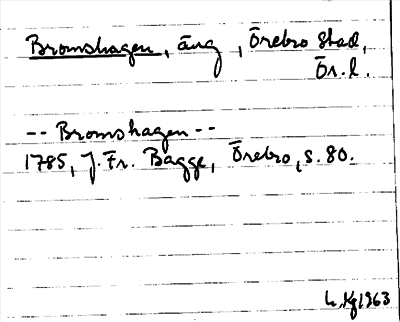 Bromshagen, äng, Örebro stad,
Ör.l.
-- Bromshagen --
1785, J. Fr. Bagge, Örebro, s. 80.
1963